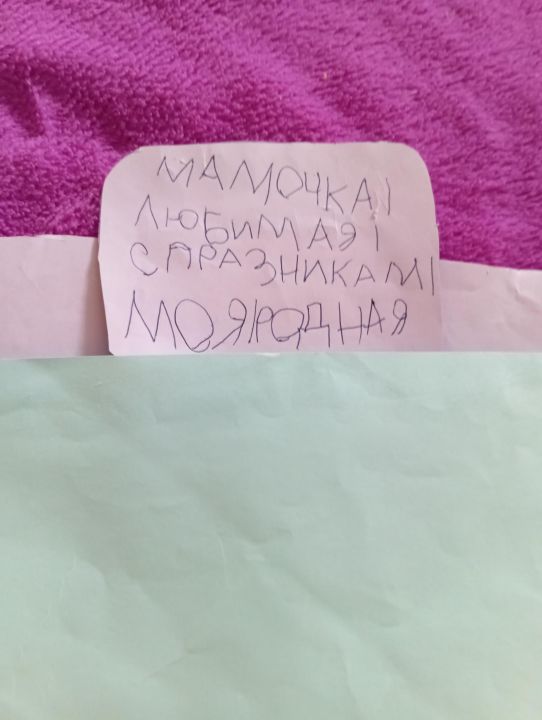 МАМОЧКА!
ЛЮБИМАЯ!
С ПРАЗНИКАМ!
МОЯ РОДНАЯ